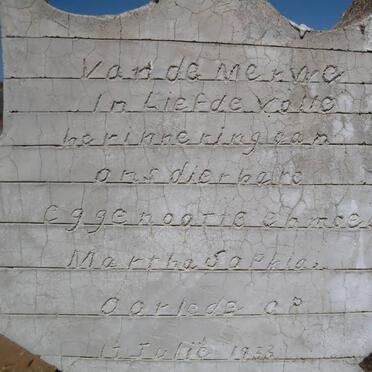 Van de Merwe
In Liefde Volle
herinnering aan
ons dierbare
Eggenoote en moe
Martha Sophia.
Oorlede op
17 Julie 1933